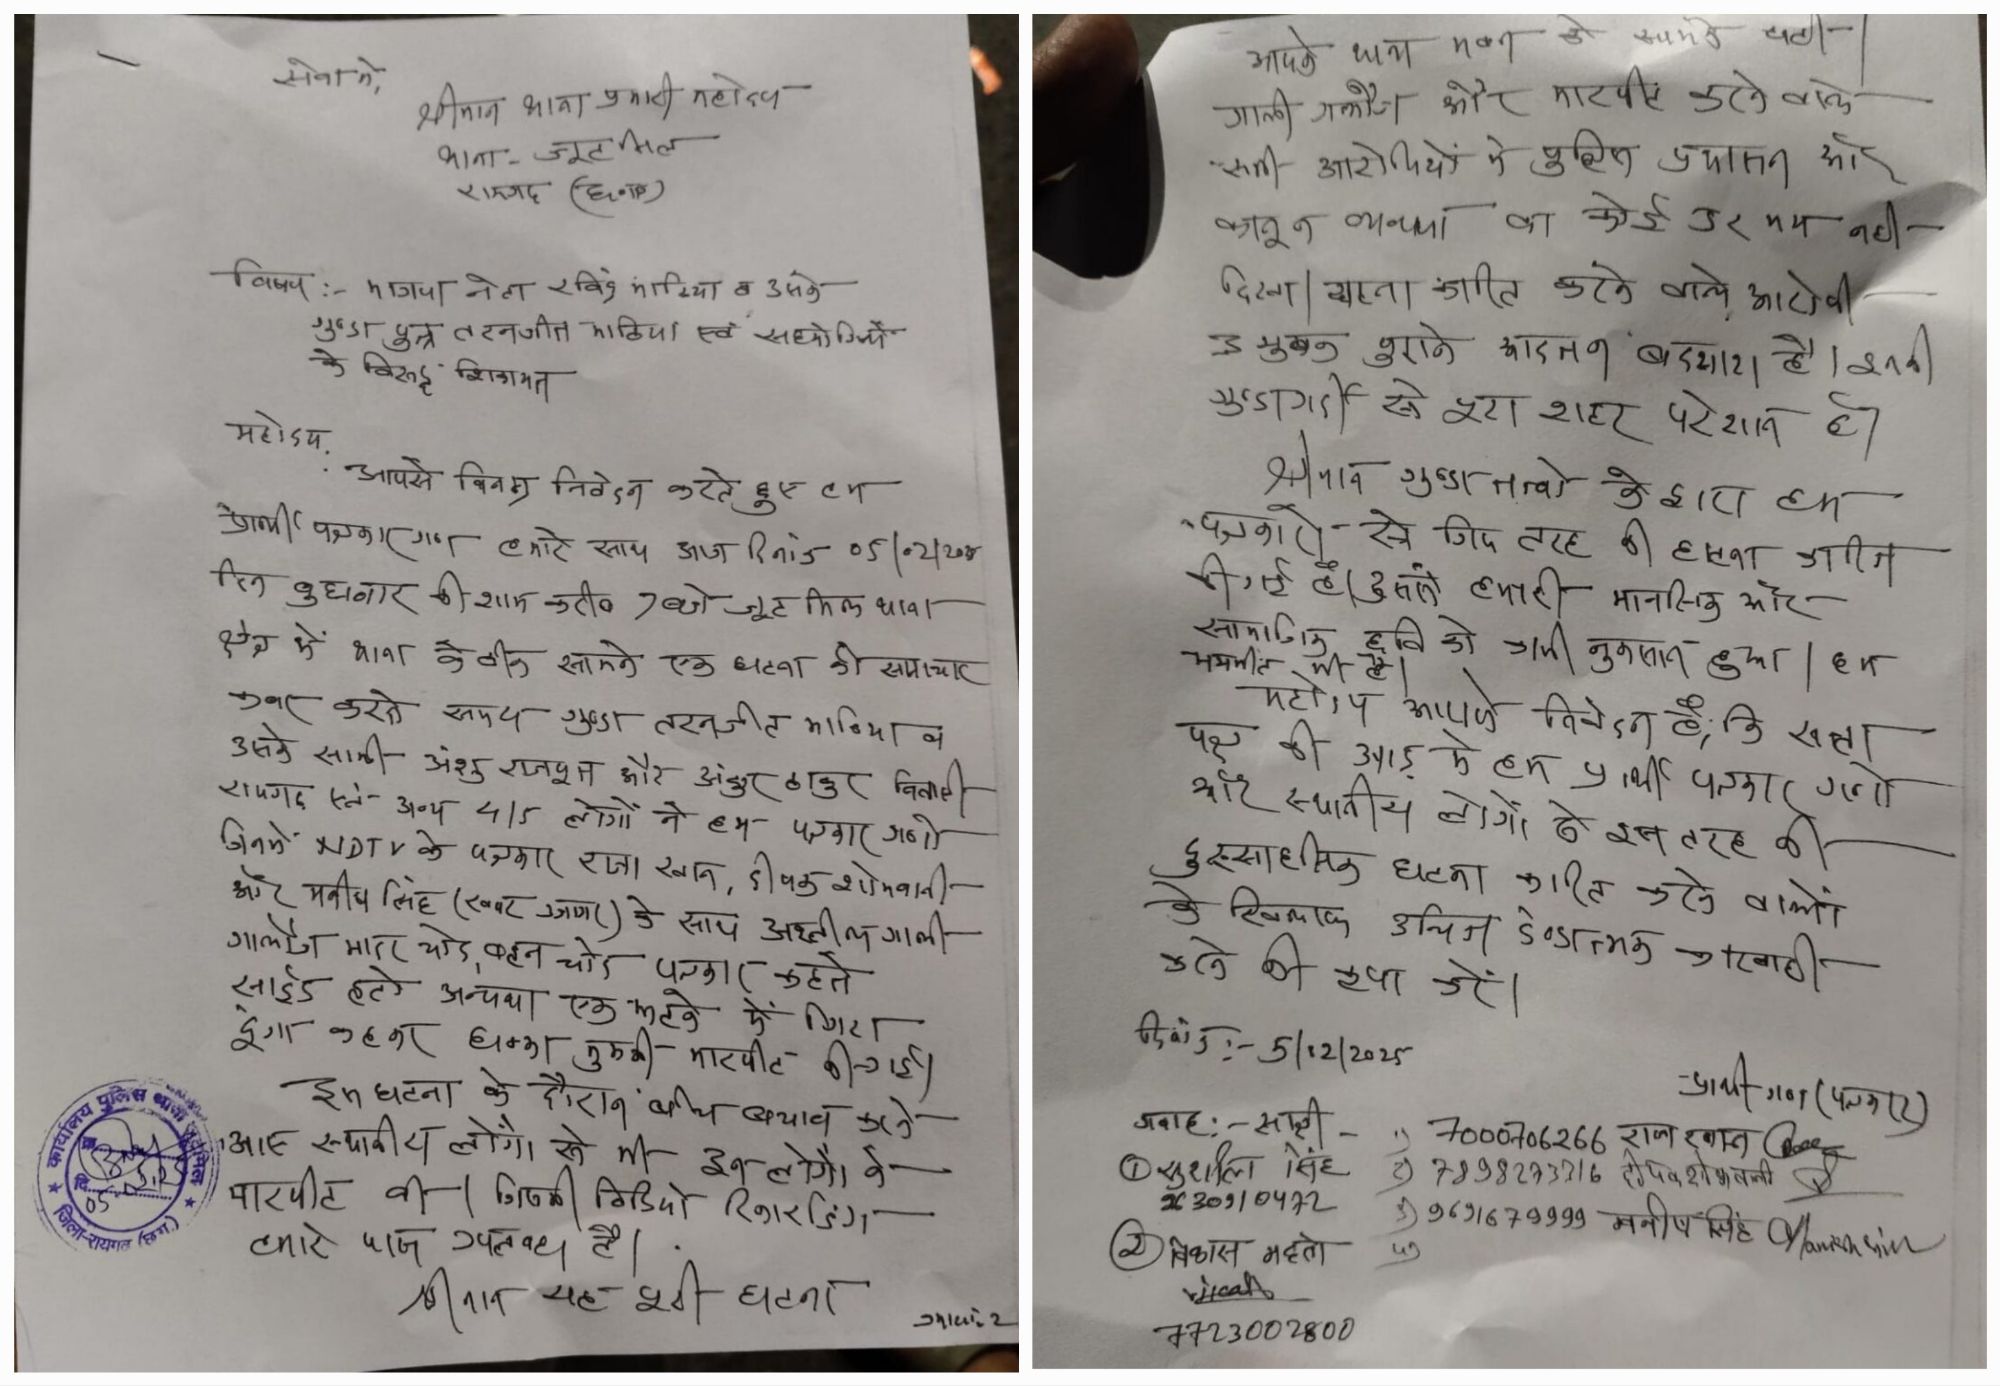 सेवा में,
श्रीमान थाना प्रभारी महोदय
थाना - जूटमिल
रायगढ़ (छ०ग०)
विषय :- भाजपा नेता रविंद्र भाटिया व उसके
गुण्डा पुत्र तरनजीत भाटिया एवं सहयोगियों
के विरूद्ध शिकायत
महोदय,
आपसे विनम्र निवेदन करते हुए हम
प्रार्थी पत्रकार गण हमारे साथ आज दिनांक 05/02/202
दिन बुधवार की शाम करीब 7 बजे जूट मिल थाना
क्षेत्र में थाना के ठीक सामने एक घटना की समाचार
कवर करते समय गुण्डा तरनजीत भाटिया व
उसके साथी अंशु राजपूत और अंकुर ठाकुर निवासी
रायगढ़ एवं अन्य 4/5 लोगों ने हम पत्रकार गणो
जिनमें NDTV के पत्रकार राजा खान, दीपक शोभवानी
और मनीष सिंह (खबर उजागर) के साथ अश्लील गाली
गालौज मादर चोद, बहन चोद पत्रकार कहते
साईड हटो अन्यथा एक झटके में गिरा
दूंगा कहकर धक्का मुक्की मारपीट की गई।
इस घटना के दौरान बीच बचाव करने
आए स्थानीय लोगों से भी इन लोगों ने
मारपीट की। जिसकी विडियो रिकारडिंग
हमारे पास उपलब्ध है।
श्रीमान यह पूरी घटना
क्रमशः 2
कार्यालय पुलिस थाना जूटमिल
दि. 05
जिला-रायगढ़ (छ.ग.)
आपके थाना भवन के सामने घटी।
गाली गलौज और मारपीट करने वाले
सभी आरोपियों मे पुलिस प्रशासन और
कानून व्यवस्था का कोई डर भय नही
दिखा। घटना कारित करने वाले आरोपी
युवक पुराने आदतन बदमाश है। इनकी
गुण्डागर्दी से पूरा शहर परेशान है।
श्रीमान गुण्डा तत्वो के द्वारा हम
पत्रकारो से जिस तरह की घटना कारित
की गई है। उससे हमारी मानसिक और
सामाजिक छवि को काफी नुकसान हुआ। हम
भयभीत भी है।
महोदय आपसे निवेदन है, कि सत्ता
पक्ष की आड़ मे हम प्रार्थी पत्रकार गणो
और स्थानीय लोगों से इस तरह की
दुस्साहसिक घटना कारित करने वालों
के खिलाफ उचित दण्डात्मक कारवाही
करने की कृपा करें।
दिनांक :- 5/02/2025
प्रार्थी गण (पत्रकार)
गवाह :- साक्षी
1) 7000706266 राजा खान
① सुशील सिंह
2) 7898273316 दीपक शोभवानी
3) 9691679999 मनीष सिंह
② विकास महतो
7723002800